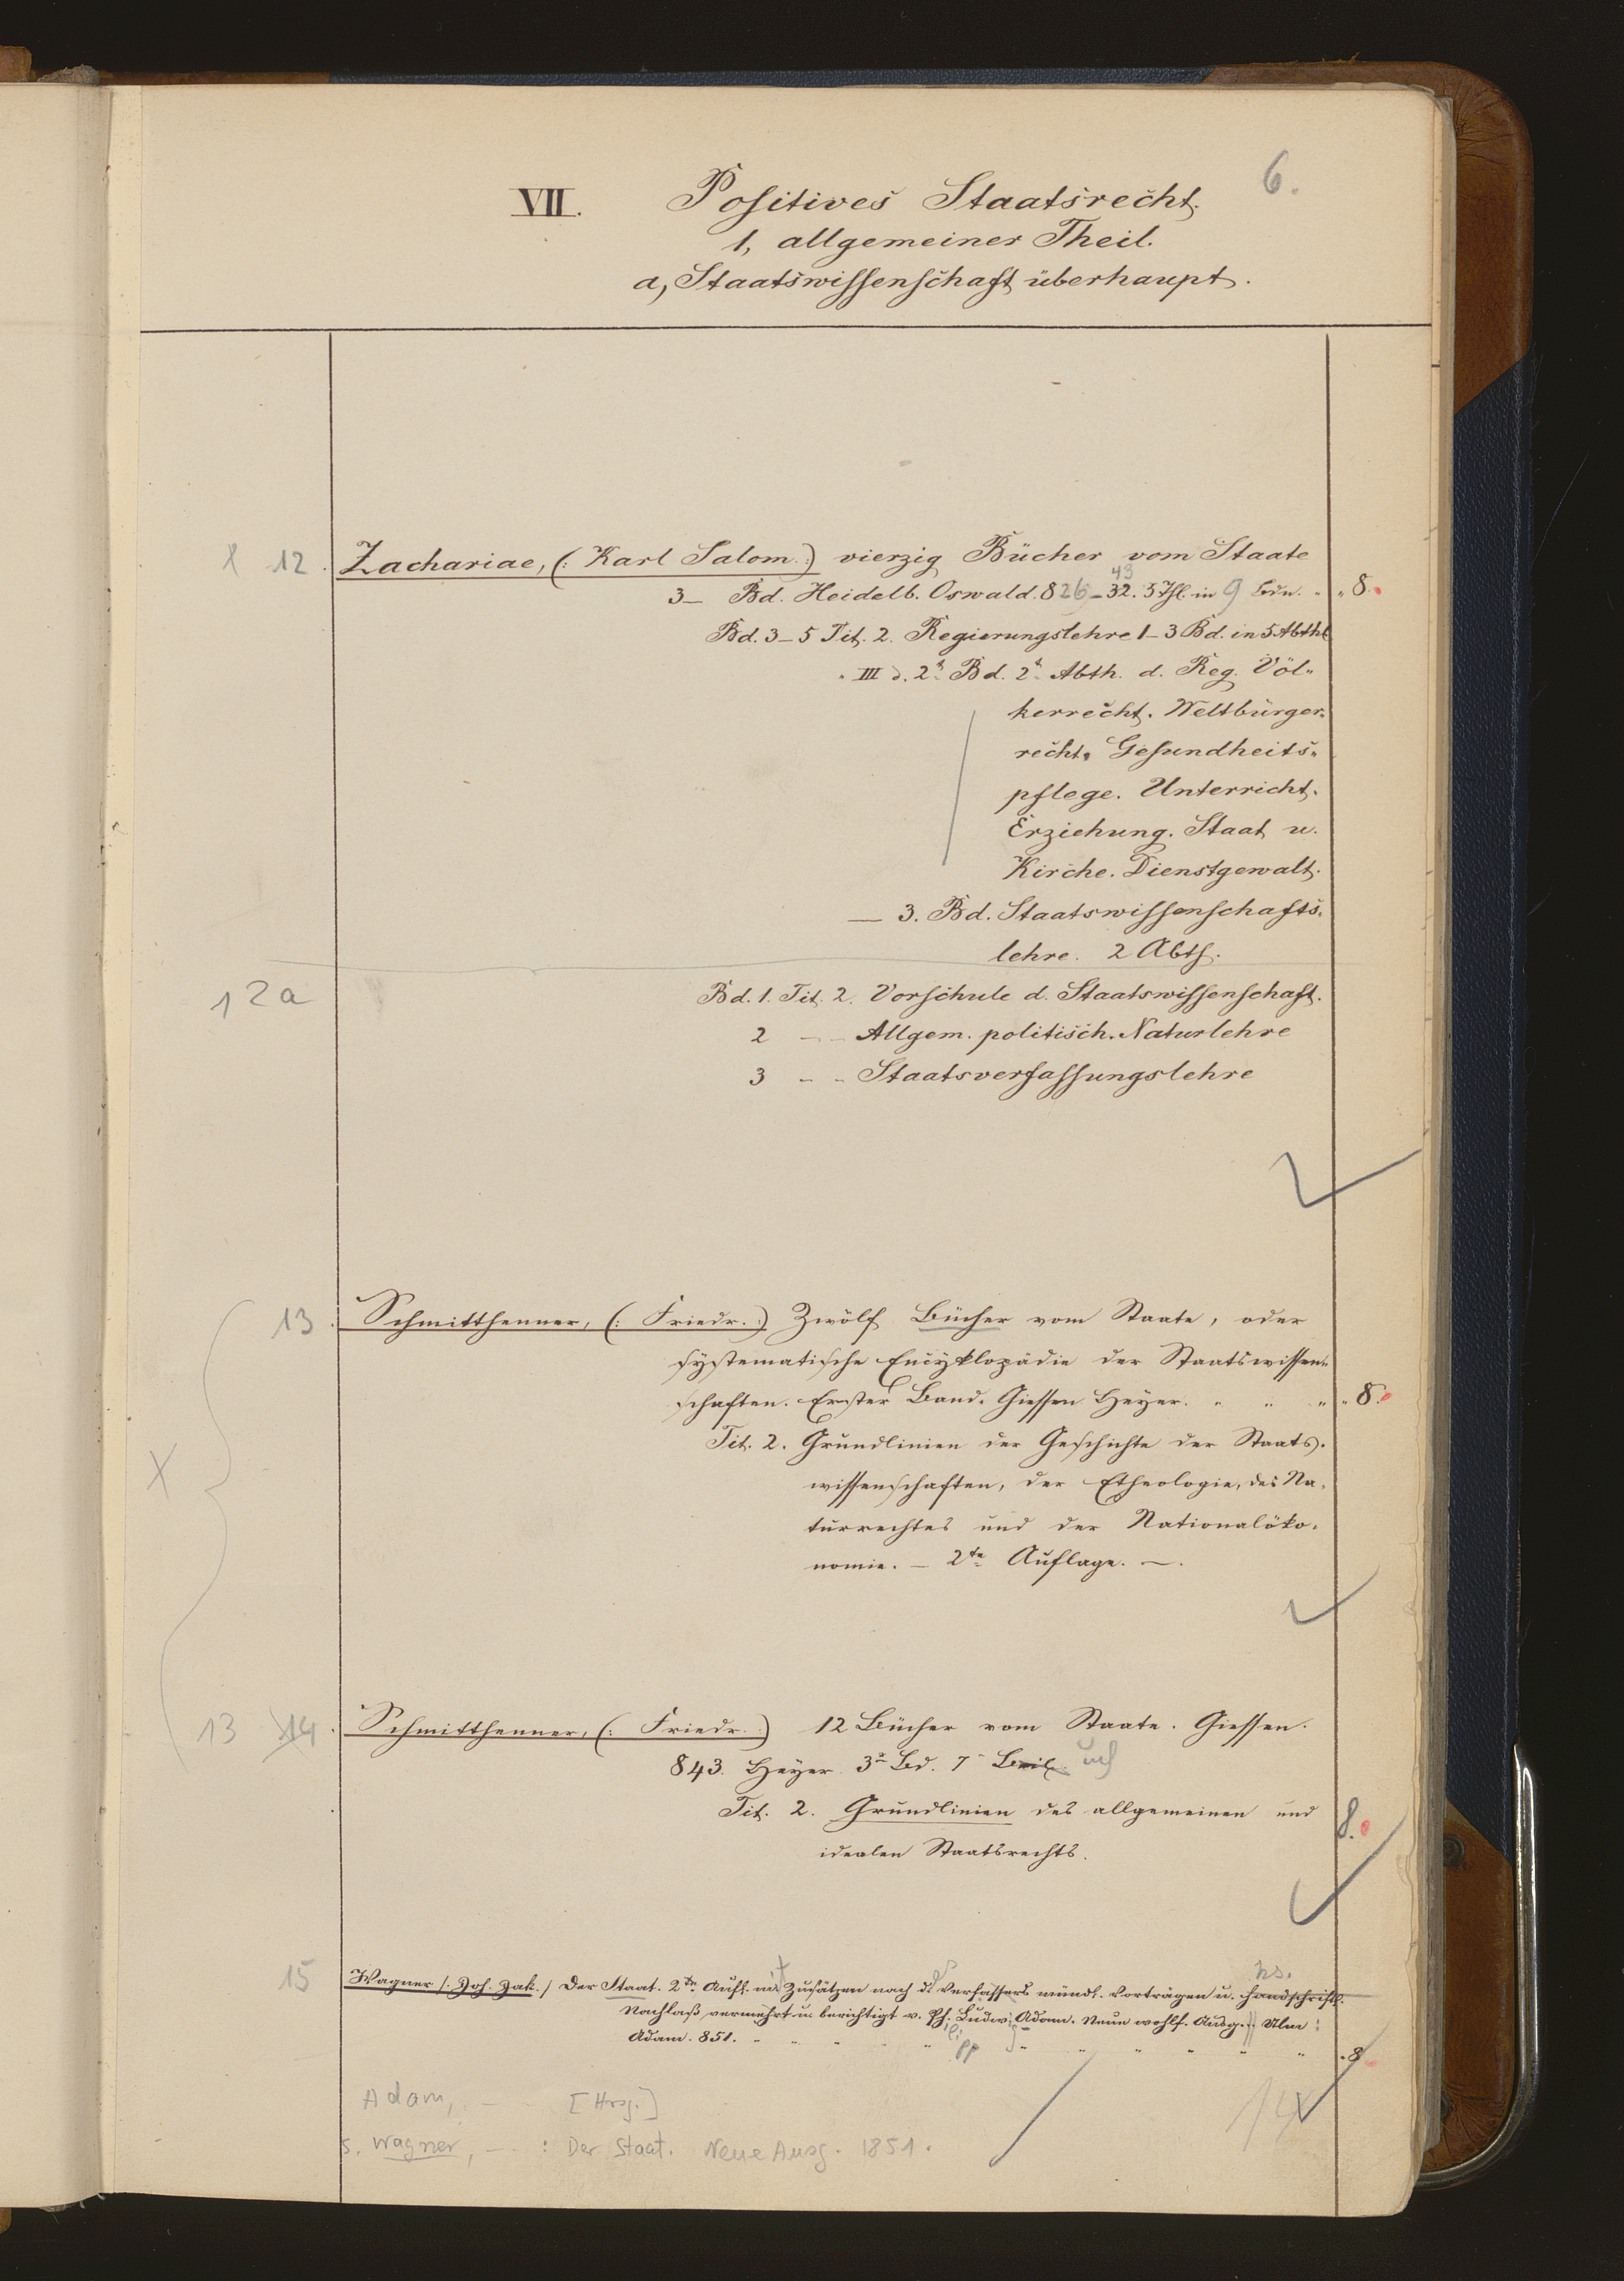 6.
VII. Positives Staatsrecht.
1, allgemeiner Theil.
a, Staatswissenschaft überhaupt.
X 12. Zachariae, (: Karl Salom. :) vierzig Bücher vom Staate
43
3_ Bd. Heidelb. Oswald. 826_32. 5 Thl. in 9 Bdn. " " 8.
Bd. 3_5 Tit. 2. Regierungslehre 1_3 Bd. in 5 Abthl
" III d. 2r Bd. 2r Abth. d. Reg. Völ"
kerrecht. Weltbürger"
recht. Gesundheits"
pflege. Unterricht.
Erziehung. Staat u.
Kirche. Dienstgewalt.
_ 3. Bd. Staatswissenschafts"
lehre. 2 Abth.
12a Bd. 1. Tit. 2. Vorschule d. Staatswissenschaft.
2 - - Allgem. politisch. Naturlehre
3 - - Staatsverfassungslehre
13. Schmitthenner, (: Friedr. :) Zwölf Bücher vom Staate, oder
systematische Encyklopädie der Staatswissen"
schaften. Erster Band. Giessen Heyer. " " " " 8.
Tit. 2. Grundlinien der Geschichte der Staats"
X wissenschaften, der Ethnologie, des Na"
turrechtes und der Nationalöko"
nomie. – 2te Auflage. –.
13 14. Schmitthenner, (: Friedr. :) 12 Bücher vom Staate. Giessen.
843. Heyer. 3r Bd. 7
Tit. 2. Grundlinien des allgemeinen und
8.
idealen Staatsrechts.
15 Wagner /: Joh. Jak. / Der Staat. 2te Aufl. mit Zusätzen nach des Verfassers mündl. Vorträgen u. handschriftl.
hs.
Nachlaß vermehrt u. berichtigt v. Ph. Ludwig Adam. Neue wohlf. Ausg. Ulm
ilipp
Adam. 851. " " " " " " " " " " " " 8
Adam, – [Hrsg.] 14
s. Wagner, – : Der Staat. Neue Ausg. 1851.